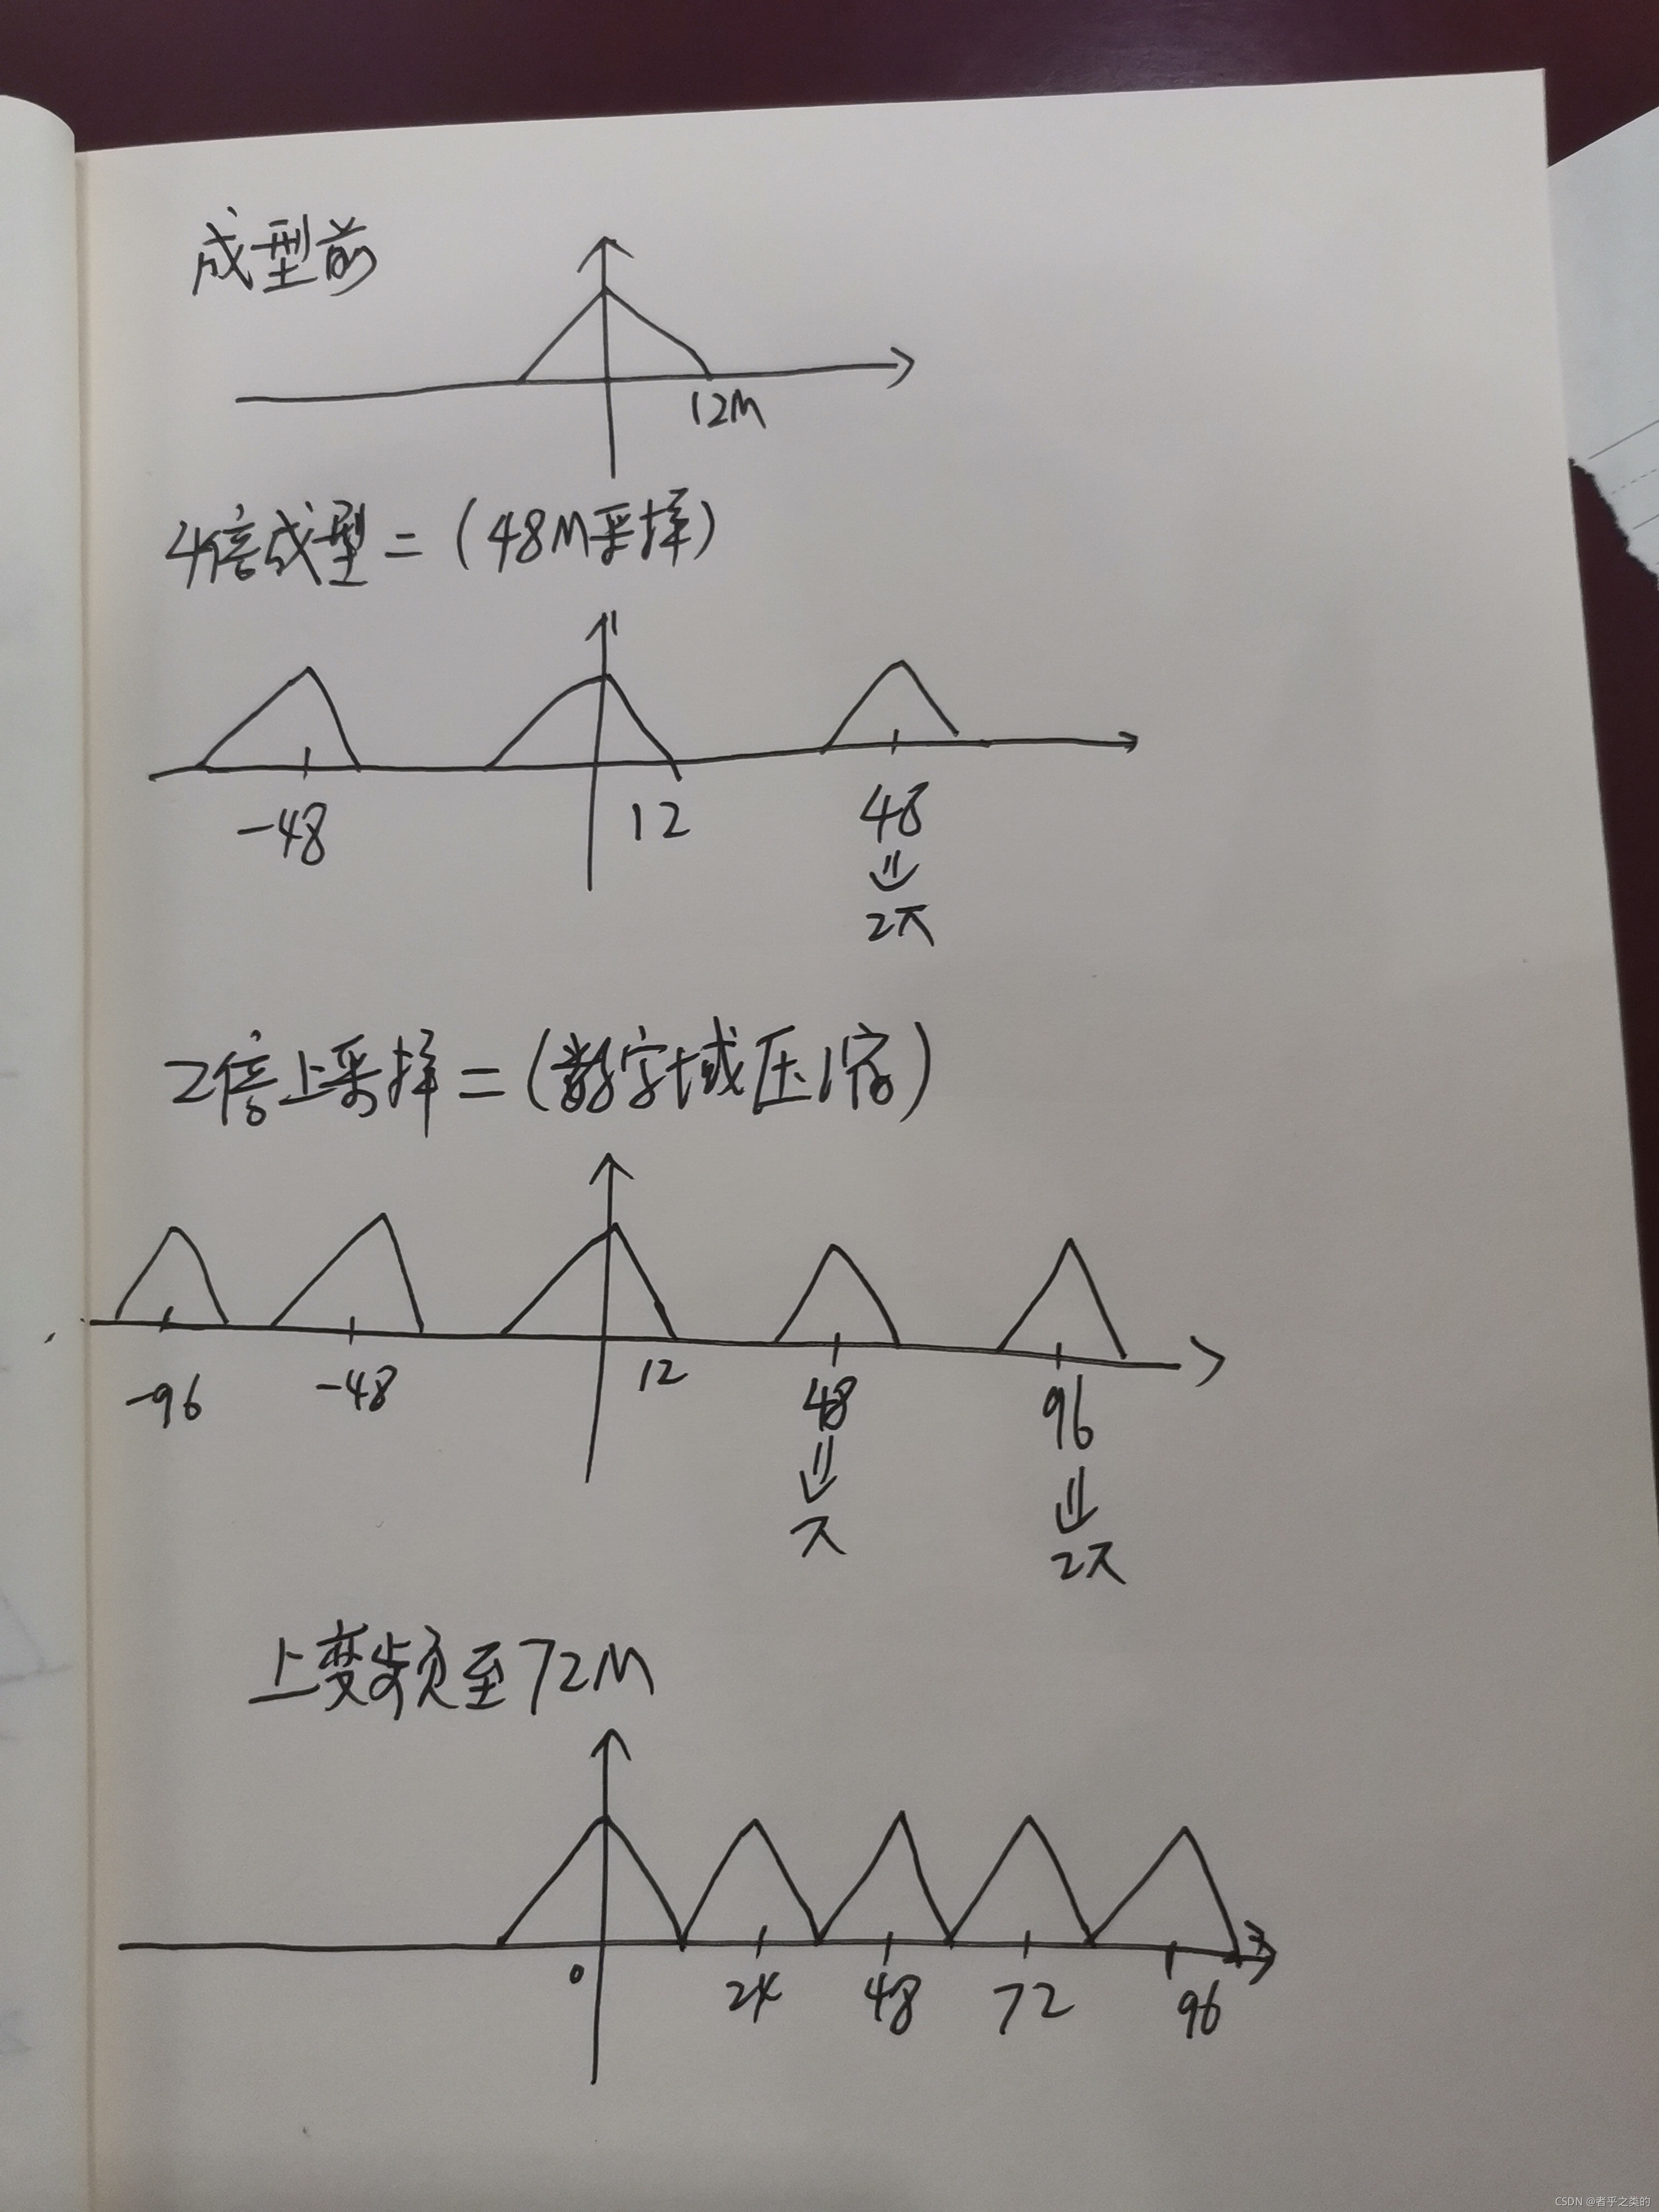 成型前
12M
4倍成型=(48M采样)
-48 12 48
2π
2倍上采样=(数字域压缩)
-96 -48 12 48 96
π 2π
上变频至72M
0 24 48 72 96
CSDN @者乎之类的